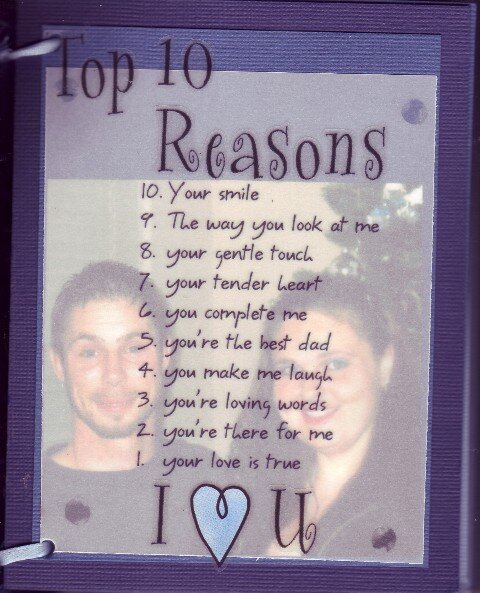 Top 10
Reasons
10. Your smile
9. The way you look at me
8. your gentle touch
7. your tender heart
6. you complete me
5. you're the best dad
4. you make me laugh
3. you're loving words
2. you're there for me
1. your love is true
I U